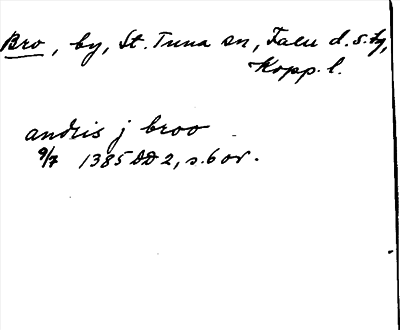 Bro, by, St. Tuna sn, Falu d. s. tg,
Kopp. l.
andris j broo
9/7 1385 DD 2, s. 6 or.